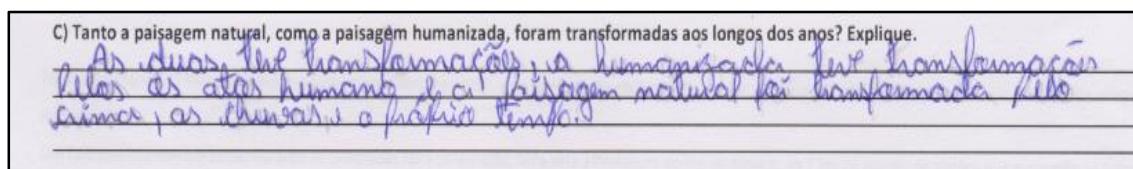 C) Tanto a paisagem natural, como a paisagem humanizada, foram transformadas aos longos dos anos? Explique.
As duas teve transformações, a humanizada teve transformações
pelos os atos humano e a paisagem natural foi transformada pelo
crima, as chuvas e o próprio tempo.